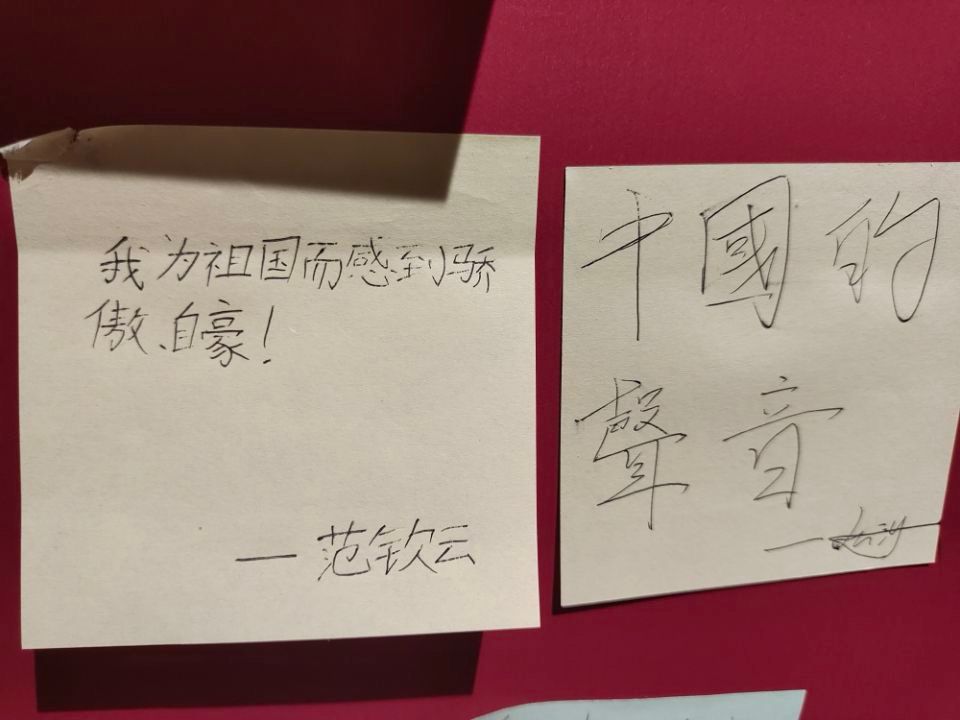 我为祖国而感到骄
傲、自豪!
—范钦云
中國的
聲音